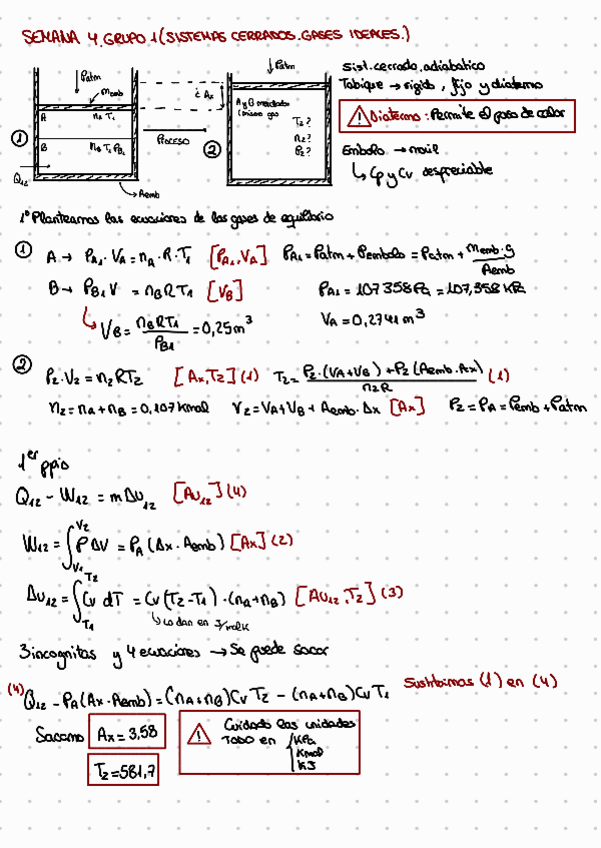 SEMANA 4. GRUPO 1 (SISTEMAS CERRADOS. GASES IDEALES.)
Patm
memb
A
nA T1
B
nB T1 PB1
Q12
Aemb
1
PROCESO
¿Δx
2
Patm
A y B mezclados
(mismo gas
T2?
n2?
P2?
Sist. cerrado, adiabatico
Tabique → rigido, fijo y diatermo
⚠ Diatermo: Permite el paso de calor
Embolo → movil
↳ Cp y Cv despreciable
1º Planteamos las ecuaciones de los gases de equilibrio
1 A → PA1 · VA = nA · R · T1 [PA1, VA] PA1 = Patm + Pembolo = Patm + memb · g / Aemb
B → PB1 V = nB R T1 [VB] PA1 = 107358 Pa = 107,358 kPa
↳ VB = nB R T1 / PB1 = 0,25 m³ VA = 0,2741 m³
2 P2 · V2 = n2 R T2 [Δx, T2] (1) T2 = P2 · (VA + VB) + P2 (Aemb · Δx) / n2 R (1)
n2 = nA + nB = 0,107 kmol V2 = VA + VB + Aemb · Δx [Δx] P2 = PA = Pemb + Patm
1er ppio
Q12 - W12 = m Δu12 [Δu12] (4)
W12 = ∫V1 V2 P ΔV = PA (Δx · Aemb) [Δx] (2)
Δu12 = ∫T1 T2 Cv dT = Cv (T2 - T1) · (nA + nB) [Δu12, T2] (3)
↳ lo dan en J/molK
3 incognitas y 4 ecuaciones → Se puede sacar
(4) Q12 - PA (Δx · Aemb) = (nA + nB) Cv T2 - (nA + nB) Cv T1 Sustituimos (1) en (4)
Sacamos Δx = 3,58
T2 = 581,7
⚠ Cuidado las unidades
TODO en { kPa
kmol
kJ